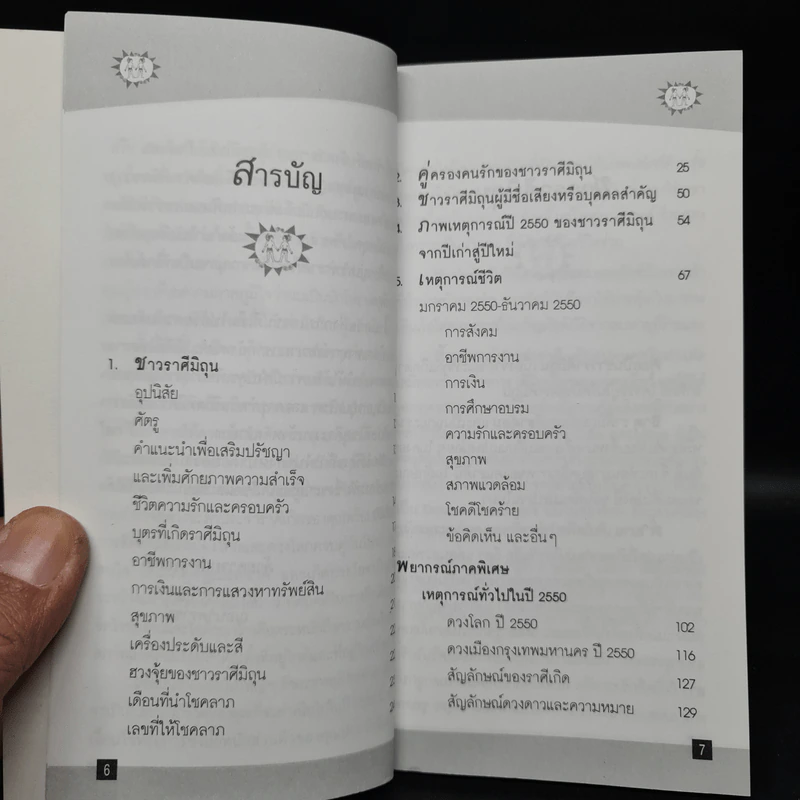 สารบัญ
1. ชาวราศีมิถุน
อุปนิสัย
ศัตรู
คำแนะนำเพื่อเสริมปรัชญา
และเพิ่มศักยภาพความสำเร็จ
ชีวิตความรักและครอบครัว
บุตรที่เกิดราศีมิถุน
อาชีพการงาน
การเงินและการแสวงหาทรัพย์สิน
สุขภาพ
เครื่องประดับและสี
ฮวงจุ้ยของชาวราศีมิถุน
เดือนที่นำโชคลาภ
เลขที่ให้โชคลาภ
6
2. คู่ครองคนรักของชาวราศีมิถุน 25
ชาวราศีมิถุนผู้มีชื่อเสียงหรือบุคคลสำคัญ 50
4. ภาพเหตุการณ์ปี 2550 ของชาวราศีมิถุน 54
จากปีเก่าสู่ปีใหม่
5. เหตุการณ์ชีวิต 67
มกราคม 2550-ธันวาคม 2550
การสังคม
อาชีพการงาน
การเงิน
การศึกษาอบรม
ความรักและครอบครัว
สุขภาพ
สภาพแวดล้อม
โชคดีโชคร้าย
ข้อคิดเห็น และอื่นๆ
พยากรณ์ภาคพิเศษ
เหตุการณ์ทั่วไปในปี 2550
ดวงโลก ปี 2550 102
ดวงเมืองกรุงเทพมหานคร ปี 2550 116
สัญลักษณ์ของราศีเกิด 127
สัญลักษณ์ดวงดาวและความหมาย 129
7